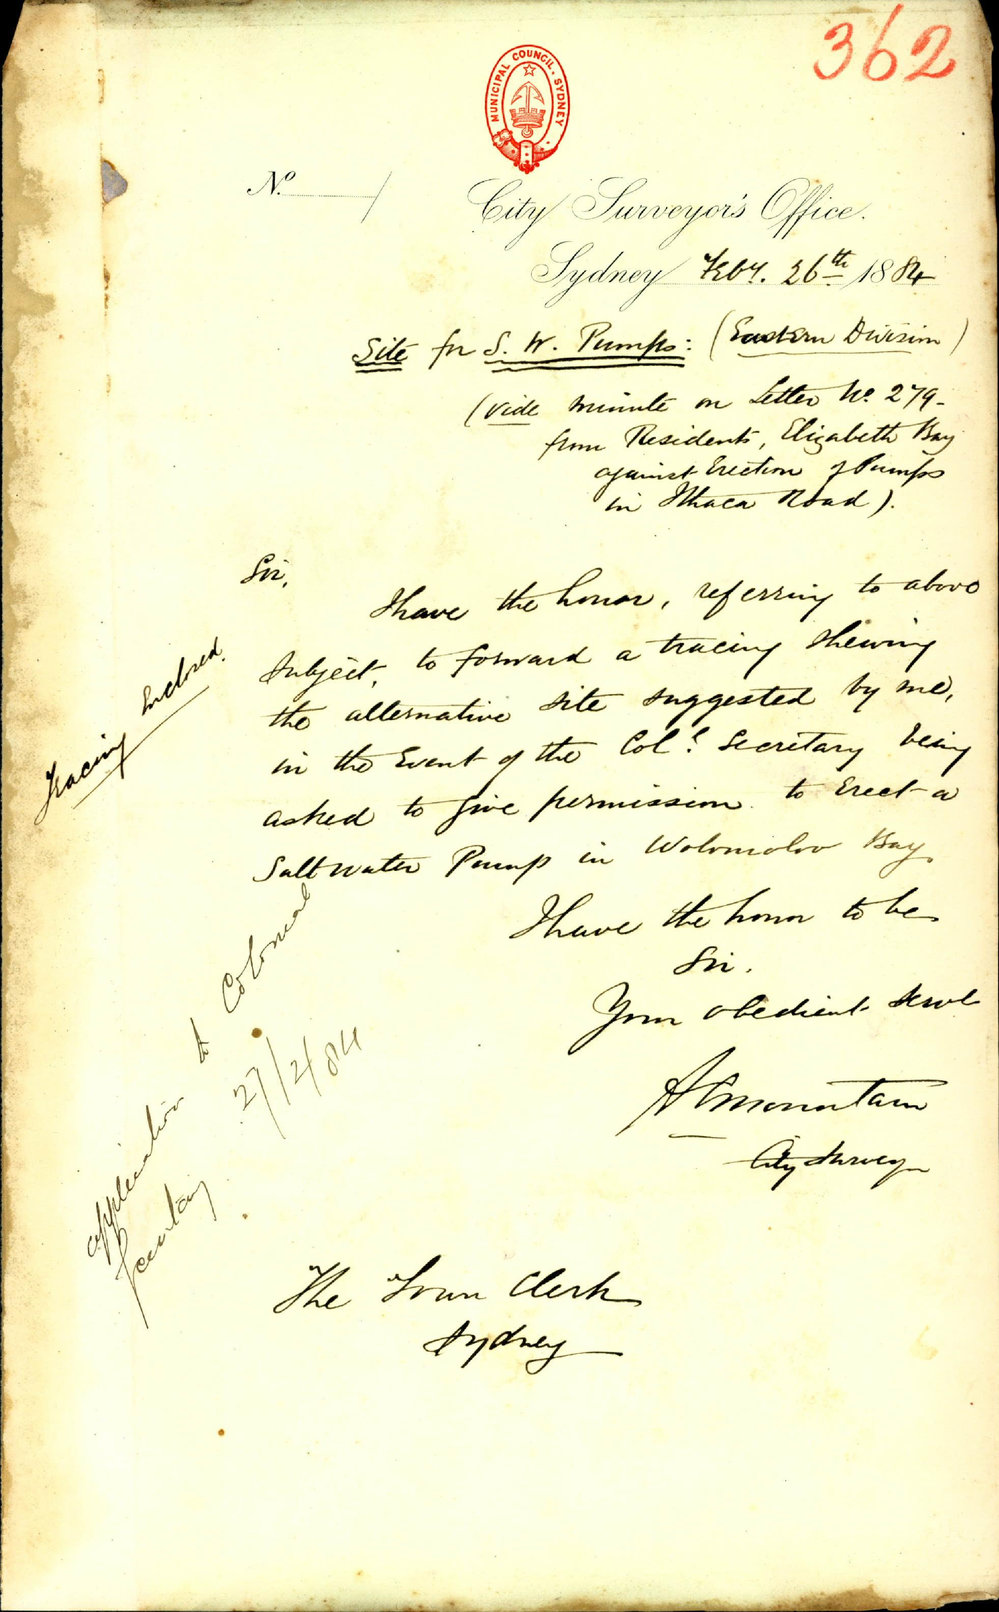 362
MUNICIPAL COUNCIL. SYDNEY
No.
City Surveyor's Office.
Sydney Feby. 26th 1884
Site for S. W. Pumps: (Eastern Division)
(Vide minute on Letter No. 279-
from Residents, Elizabeth Bay
against Erection of Pumps
in Ithaca Road).
Sir,
I have the honor, referring to above
subject, to forward a tracing shewing
the alternative site suggested by me,
in the Event of the Col. Secretary being
asked to give permission to Erect a
Salt water Pump in Wolomoloo Bay
I have the honor to be
Sir.
Your obedient Servt
A C Mountain
City Surveyor
Tracing Enclosed.
application to Colonial
Secretary
27/2/84
The Town Clerk
Sydney